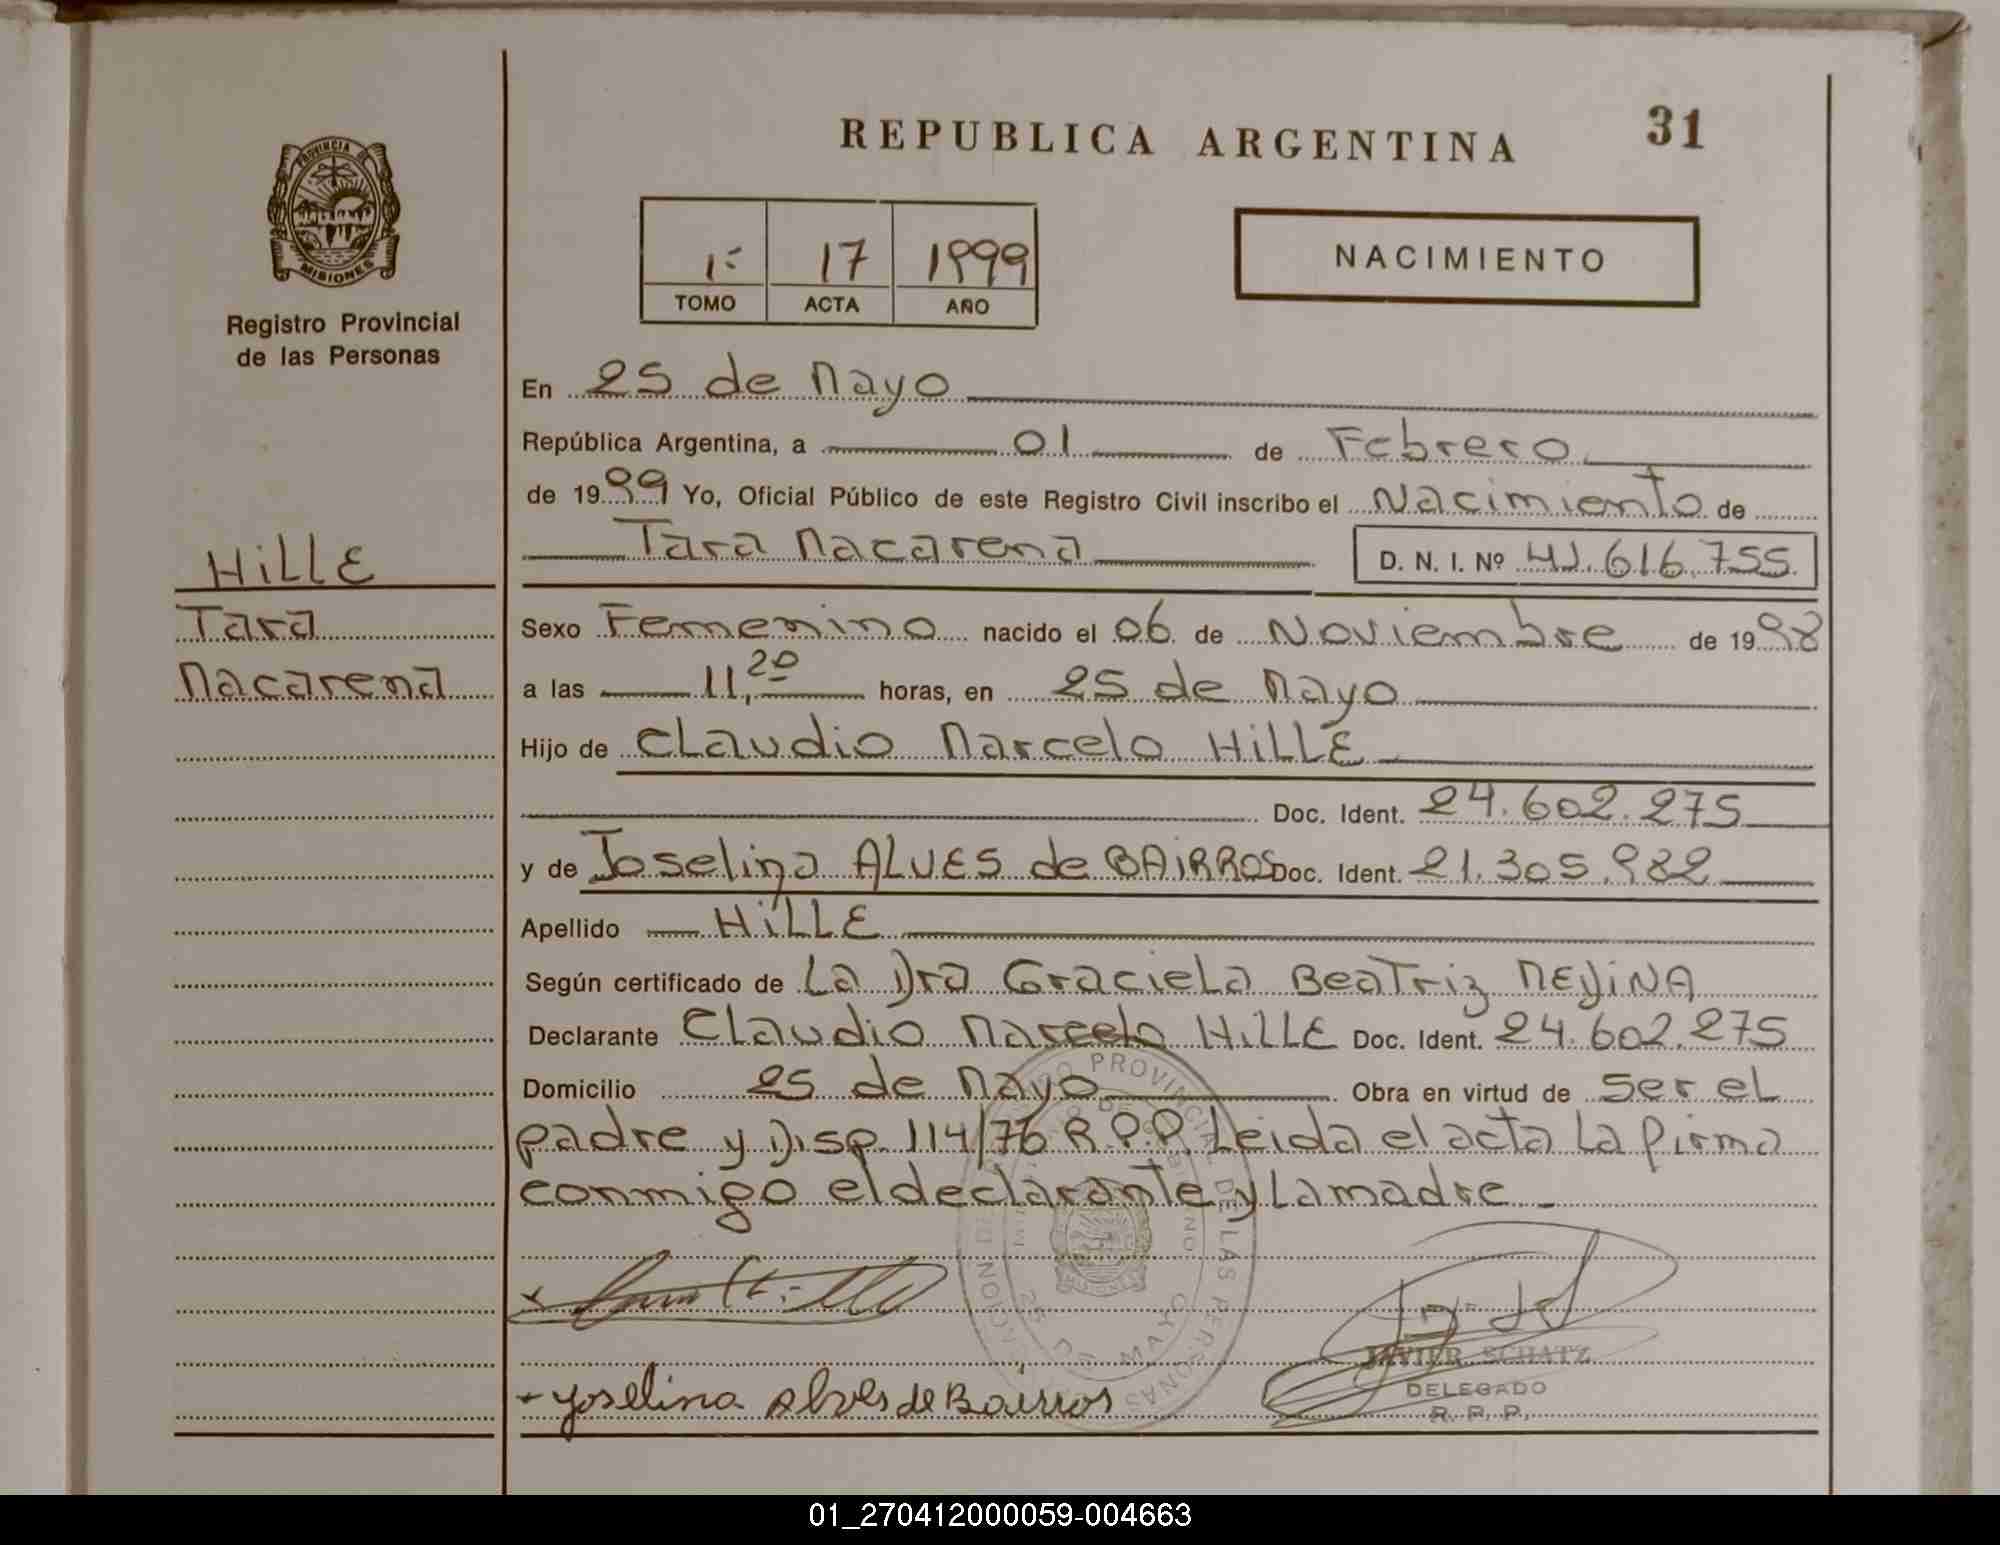 REPUBLICA ARGENTINA
31
PROVINCIA DE
MISIONES
Registro Provincial
de las Personas
1º 17 1999
TOMO ACTA AÑO
NACIMIENTO
En 25 de Mayo
República Argentina, a 01 de Febrero
de 1999 Yo, Oficial Público de este Registro Civil inscribo el Nacimiento de
Tara Macarena D. N. I. Nº 41.616.755
HiLLE
Tara
Macarena
Sexo Femenino nacido el 06 de Noviembre de 1998
a las 11,20 horas, en 25 de Mayo
Hijo de Claudio Marcelo HiLLE
Doc. Ident. 24.602.275
y de Joselina ALVES de BAiRROS Doc. Ident. 21.305.982
Apellido HiLLE
Según certificado de La Dra Graciela Beatriz MEDiNA
Declarante Claudio Marcelo HiLLE Doc. Ident. 24.602.275
Domicilio 25 de Mayo Obra en virtud de Ser el
padre y Disp. 114/76 R.P.P. Leida el acta La firma
conmigo el declarante y La madre.-
PROVINCIAL DE LAS PERSONAS
25 DE MAYO
MISIONES
x
JAVIER SCHATZ
DELEGADO
R. P. P.
Yoselina Alves de Bairros
01_270412000059-004663